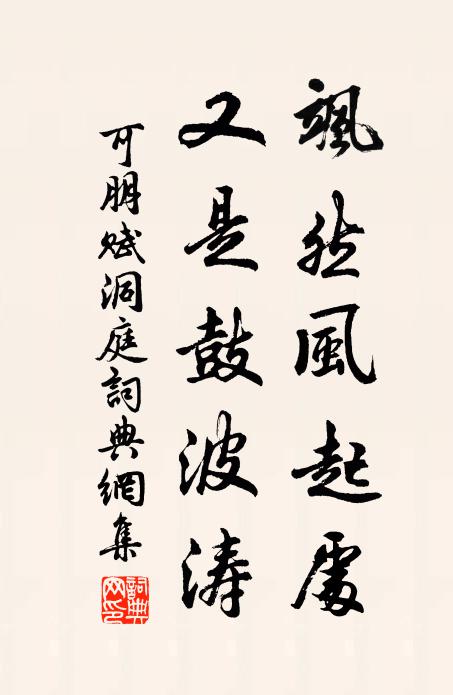 颯然風起處
又是鼓波濤
可朋賦洞庭詞典網集
詞典網印